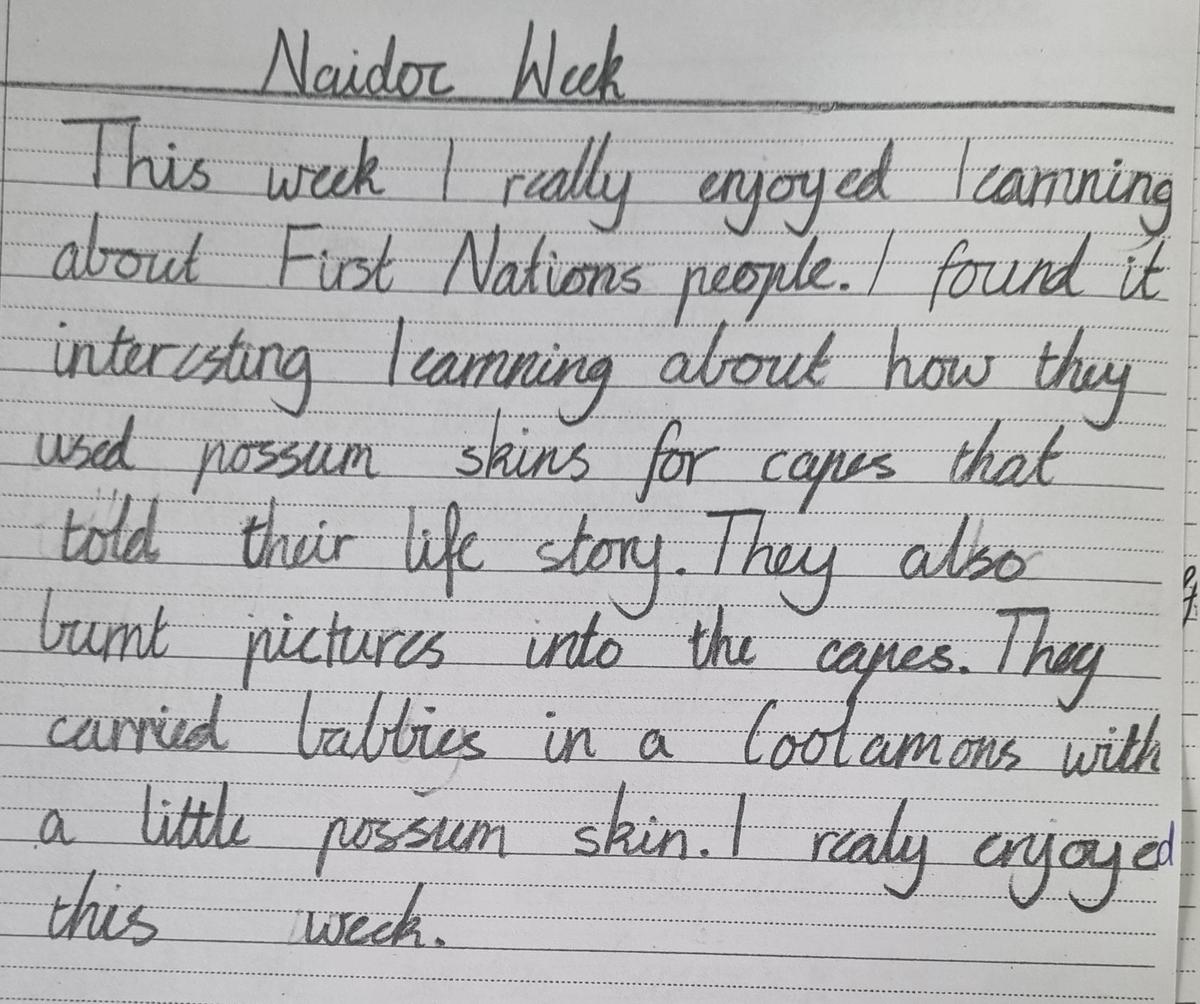 Naidoc Week
This week I really enjoyed learning
about First Nations people. I found it
interesting learning about how they
used possum skins for capes that
told their life story. They also
burnt pictures into the capes. They
carried babbies in a Coolamons with
a little possum skin. I realy enjoyed
this week.